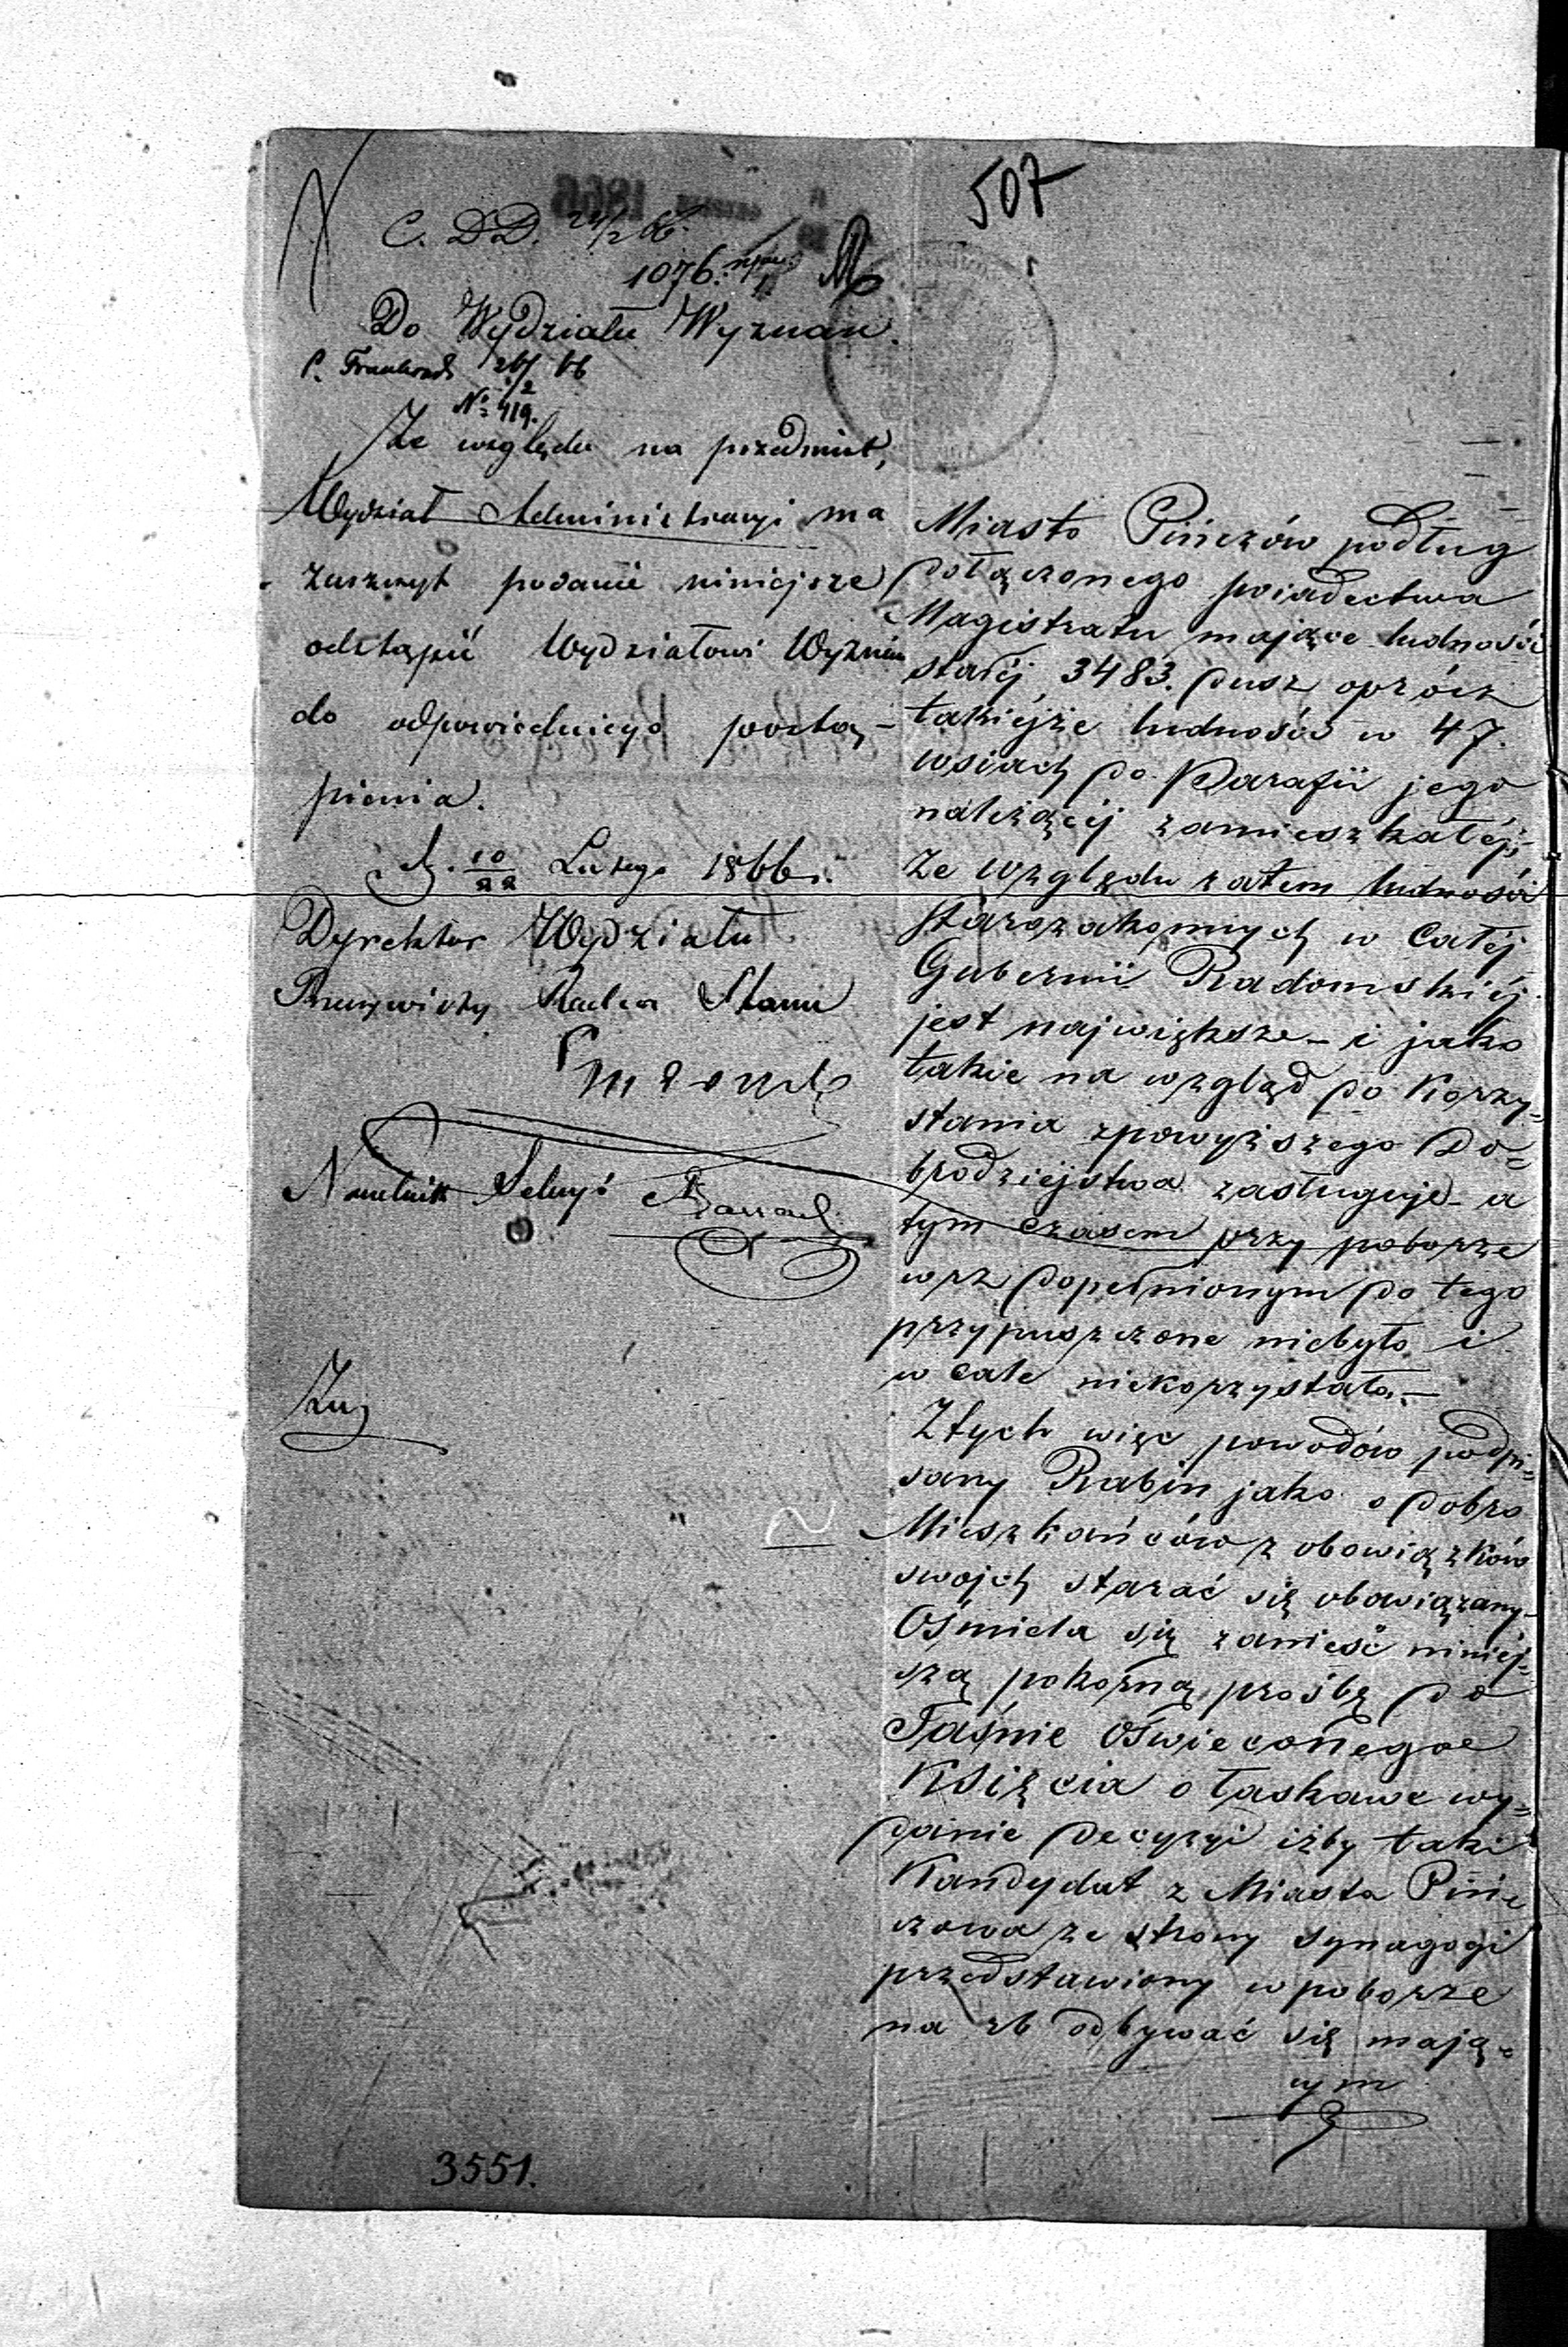 507
C. D.D. 24/2 66.
1076.
Do Wydziału Wyznań.
26/2 66
№ 419.
Ze względu na przedmiot,
Wydział Administracyi ma
zaszczyt podanie niniejsze
odstąpić Wydziałowi Wyznań
do odpowiedniego postą-
pienia.
d. 10/22 Lutego 1866 r.
Dyrektor Wydziału
Rzeczywisty Radca Stanu
Naczelnik Sekcyi
Miasto Pińczów podług
dołączonego świadectwa
Magistratu mające ludności
stałéj 3483. dusz oprócz
takiéjże ludności w 47.
wsiach do Parafii jego
należącéj zamieszkałéj;
ze względu zatem ludności
starozakonnych w całéj
Gubernii Radomskiéj
jest największe – i jako
takie na wzgląd do korzy=
stania zpowyższego do=
brodziejstwa zasługuje – a
tym czasem przy poborze
w rz dopełnionym do tego
przypuszczone niebyło i
w cale niekorzystało. –
Ztych więc powodów podpi=
sany Rabin jako o dobro
Mieszkańców z obowiązków
swojch starać się obowiązany –
Ośmiela się zanieść niniéj=
szą pokorną prośbę do
Jaśnie Oświeconego
Księcia o łaskawe wy=
danie decyzyi iżby taki
Kandydat z Miasta Piń
czowa ze strony synagogi
przedstawiony w poborze
na rb odbywać się mają=
cym
3551.